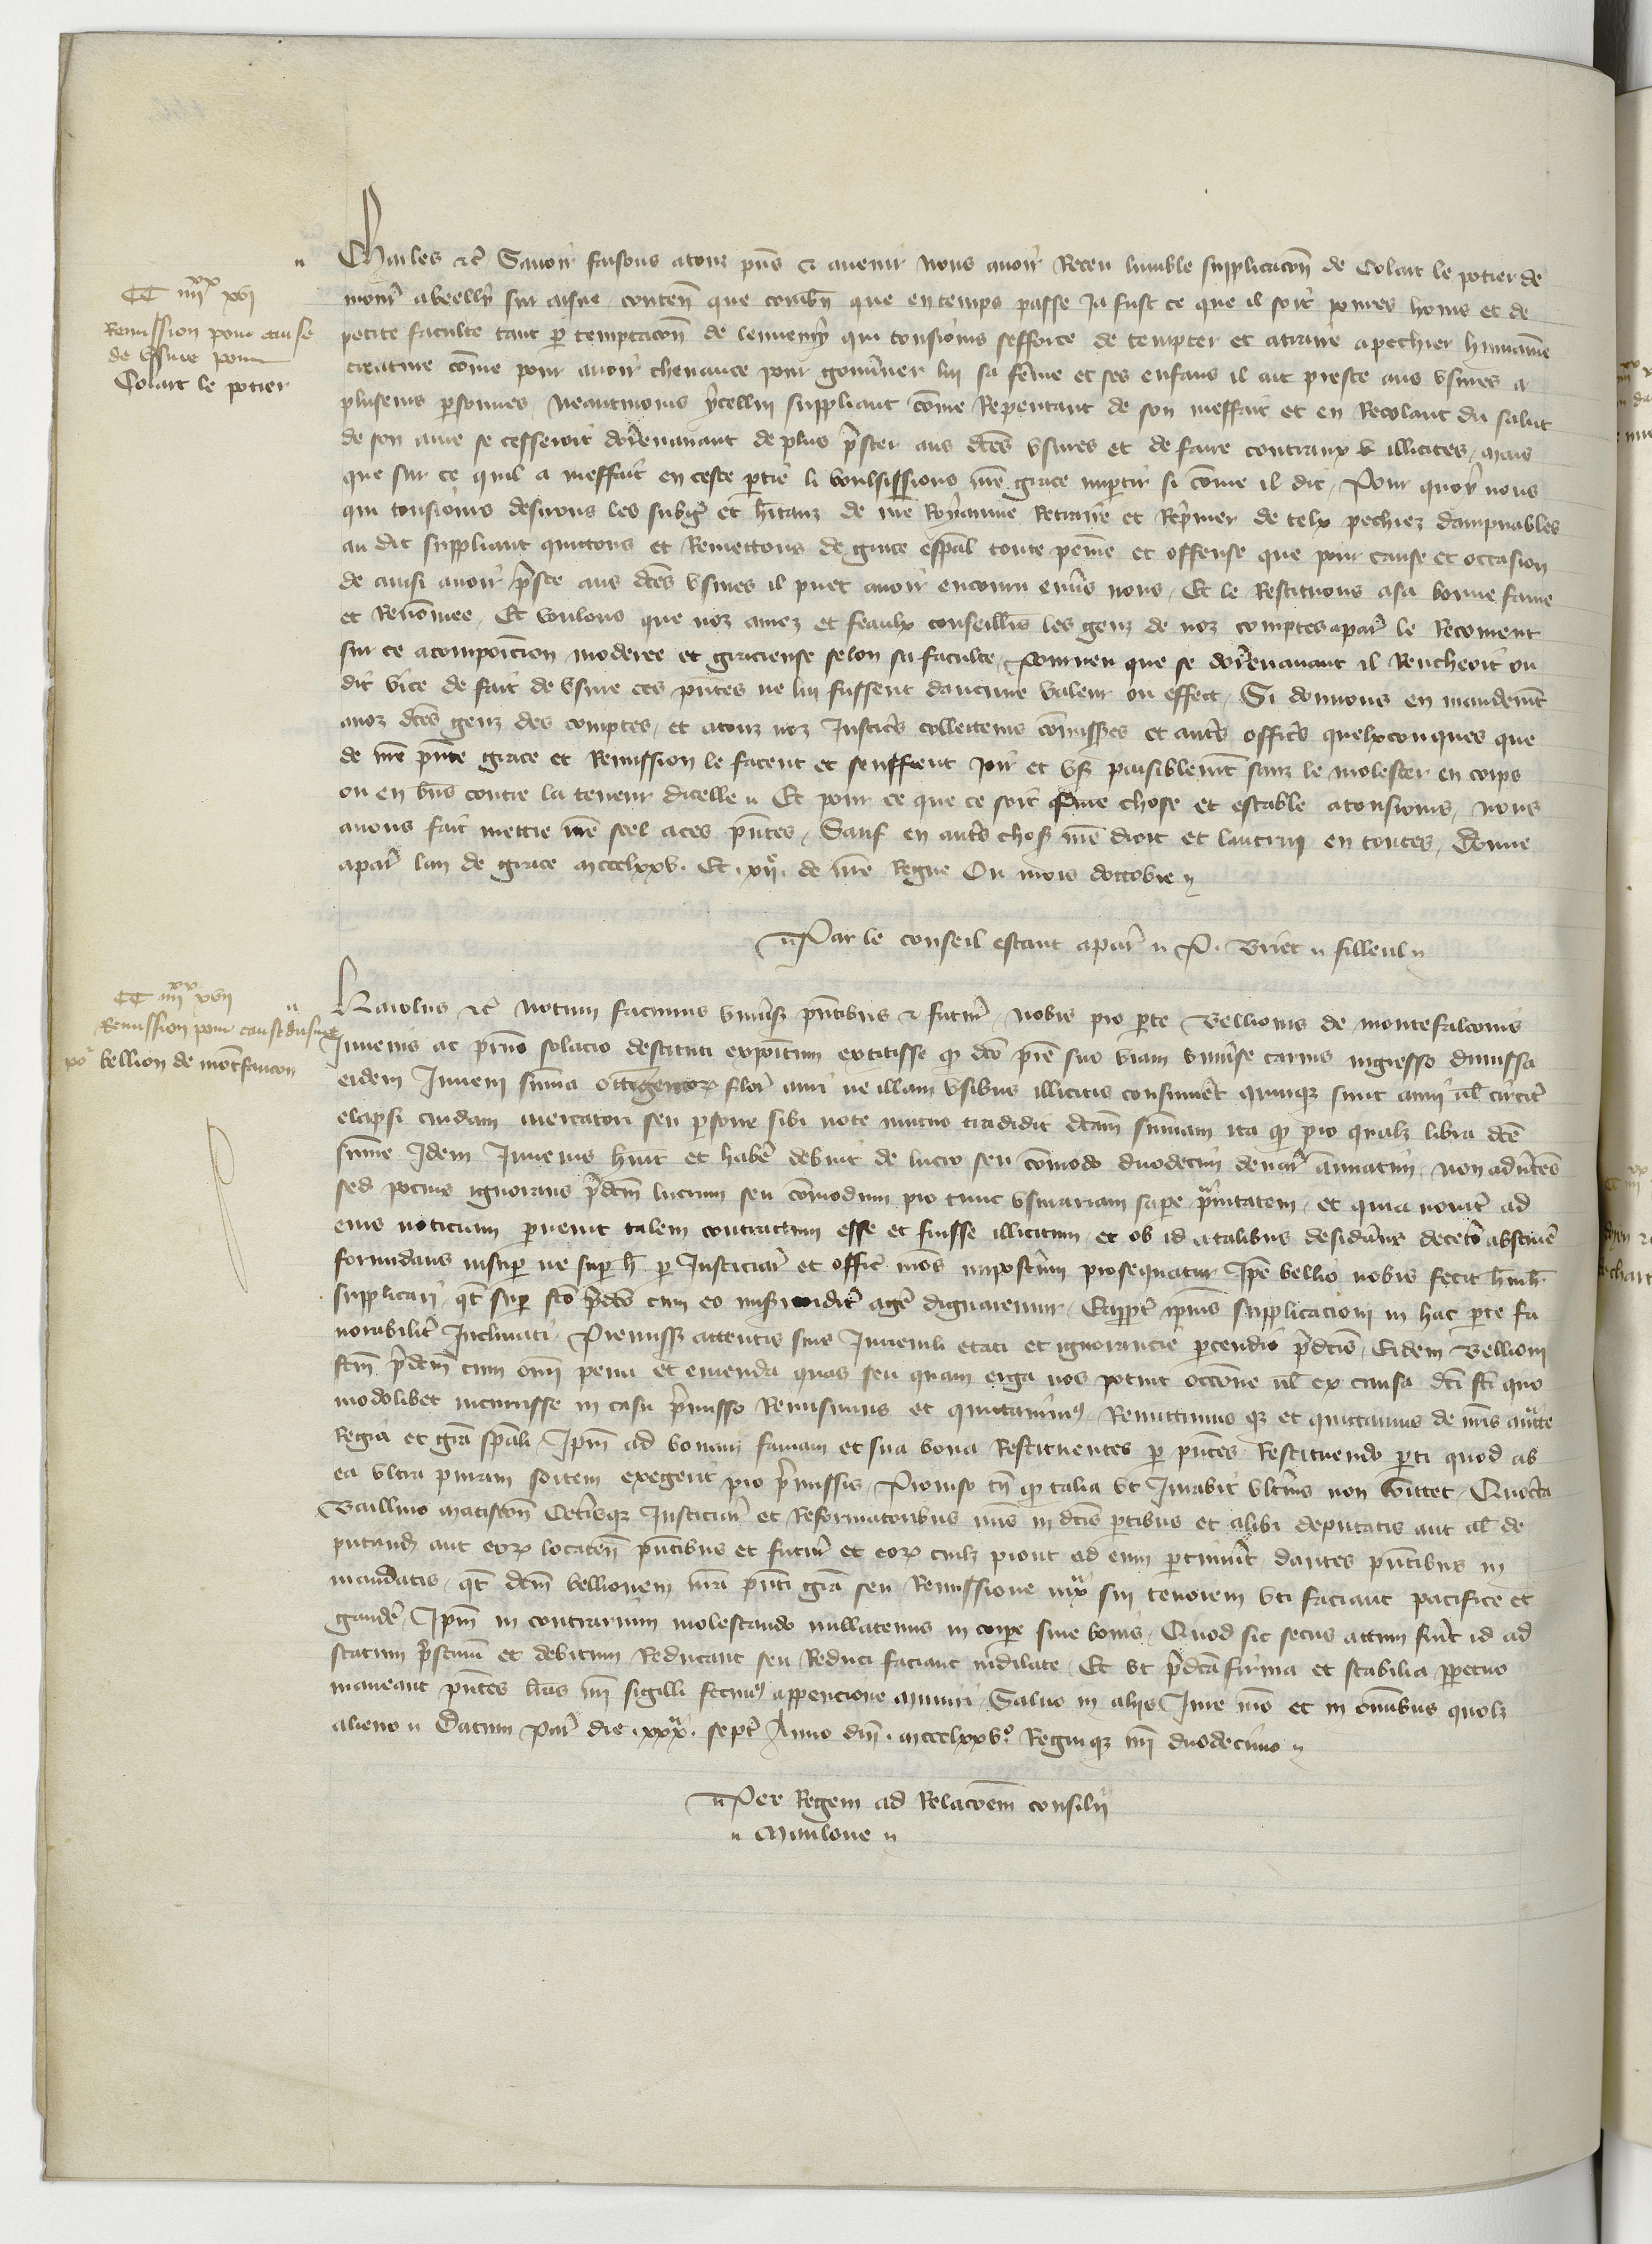 CC iiiixx xvi
Remission pour cause
de usure pour
Colart le potier
Charles etc̃ Savoir faisons a touz pñs et avenir nous avoir Receu humble supplicacõn de Colart le potier de
mour̃ a beelly sur aisne conteñ que comb̃n que en temps passe Ja fust ce que il soit povres homs et de
petite faculte tant p temptacõn de lennemy qui tousiours sefforce de tempter et atraire a pechier humaine
creature cõme pour avoir chevance pour gouv̾ner lui sa fẽme et ses enfans il ait preste aus usures a
pluseurs p̱sonnes Neantmoins ycellui suppliant cõme Repentant de son meffait et en Recolant du salut
de son ame se cesseroit dor̃enavant de plus p̃ster aus dc̃es usures et de faire contraux illicites Mais
que sur ce quil a meffait en ceste p̱tie li voulsissions nr̃e grace imp̱tir si cõme il dit Pour quoy nous
qui tousiours desirons les subig̃ et hr̃tanz de nr̃e Royaume Retraire et Rep̃mer de telx pechiez dampnables
au dit suppliant quittons et Remettons de grace esp̃al toute peine et offense que pour cause et occasion
de ainsi avoir p̃ste aus dc̃es usures il puet avoir encouru env̾s nous Et le Restituons a sa bonne fame
et Renõmee Et voulons que noz amez et feaulx conseill̃rs les genz de noz comptes a par̃ le Recoivent
sur ce a composĩcion moderee et gracieuse selon sa faculte Pourveu que se dor̃enavant il Rencheoit ou
dit vice de fait de usure ces p̃ntes ne lui fussent daucune valeur ou effect Si donnons en mandem̃t
a noz dc̃es genz des comptes et a touz noz Justic̃s collecteurs cõmisses et autr̃s offic̃s quelxconques que
de nr̃e p̃nte grace et Remission le facent et seuffrent joir et us̃ paisiblem̃t sanz le molester en corps
ou en b̃ns contre la teneur dicelle Et pour ce que ce soit ferme chose et estable a tousiours nous
avons fait mettre nr̃e seel a ces p̃ntes Sauf en autr̃s choses nr̃e droit et lautruy en toutes Donne
a par̃ lan de grace mccclxxv. Et xiie. de nr̃e Regne Ou mois doctobre
Par le conseil estant a par̃ P. Briet filleul
CC iiiixx xvii
Remission pour cause dusure
po2 bellion de mont faucon
Karolus etc̃ Notum facimus univ̾sis p̃ntibus et futur̃ Nobis pro p̱te Bellionis de montefalconis
Juvenis ac p̱rno solacio destituti exposĩtum extitisse q̱ dc̃o p̱re suo viam univ̾se carnis ingresso dimissa
eidem Juveni sũma octigentor̃ flor̃ auri ne illam usibus illicitis consumer̃t quinq̃ sunt anni vl̃ circit̃
elapsi cuidam mercatori seu p̱sone sibi note mutuo tradidit dc̃am sũmam ita q̱ pro qualz libra dc̃e
sũme Idem Juvenis h̃uit et hab̃e debuit de lucro seu cõmodo duodecim denar̃ annatim non adv̾tens
sed pocius ignorans p̃dc̃m lucrum seu cõmodum pro tunc usurariam sap̱e p̃vitatem et quia novit̃ ad
eius noticiam p̱venit talem contractum esse et fuisse illicitum et ob id a talibus desid̃ans decet̃o abstin̾e
formidans insup̱ ne sup̱ h̃ p̱ Justiciar̃ et offic̃ nr̃os imposter̃um prosequatur Ip̃e bellio nobis fecit hum̃l̃
supplicari q̃t sup̱ fc̃o p̃dc̃o cum eo miser̃icordit̃ ag̃e dignaremur Eapp̱t̃ ip̃ius supplicacioni in hac p̱te fa
vorabilit̃ Inclinati Premiss̃ attentis sine Juvenili etati et ignorancie p̱cendo p̃dc̃is Eidem Bellioni
fc̃m p̃dc̃m cum om̃i pena et emenda quas seu quam erga nos potuit occõne vl̃ ex causa dc̃i fc̃i quo
modolibet incurrisse in casu p̃misso Remisimus et quittavim9 Remittimus q̃ et quittamus de nr̃is auct̃te
Regia et gr̃a sp̃ali Ip̃m ad bonam famam et sua bona Restituentes p̱ p̃ntes Restituendo p̱ti quod ab
ea ultra puram sortem exegerit pro p̃missis Proviso tñ q̱ talia ut Jurabit ulter̃ius non com̃ittet Quocir̃ca
Baillivo matiscõn Cet̾isq̃ Justiciar̃ et Reformatoribus nr̃is in dc̃is p̱tibus et alibi deputatis aut al̃ de
putand̃ aut eor̃ locateñ p̃ntibus et futur̃ et eor̃ cuilz prout ad eum p̱tinuer̃it dantes p̃ntibus in
mandatis q̃t dc̃m bellionem nr̃a p̃nti gr̃a seu Remissione iuxta sui tenorem uti faciant pacifice et
gaud̾e Ip̃m in contrarium molestando nullatenus in corp̱e sive bonis Quod sic secus actum fuer̃it id ad
statum p̃stinũ et debitum Reducant seu Reduci faciant indilate Et ut p̃dc̃a firma et stabilia p̱petuo
maneant p̃ntes lr̃as nr̃i sigilli fecim9 appencione muniri Salvo in aliis Jure nr̃o et in om̃ibus quolz
alieno Datum par̃ die xxxa. sept̃ Anno dñi. mccclxxvo. Regniq̃ nr̃i duodecimo
Per Regem ad Relacõem consilii
Maulone